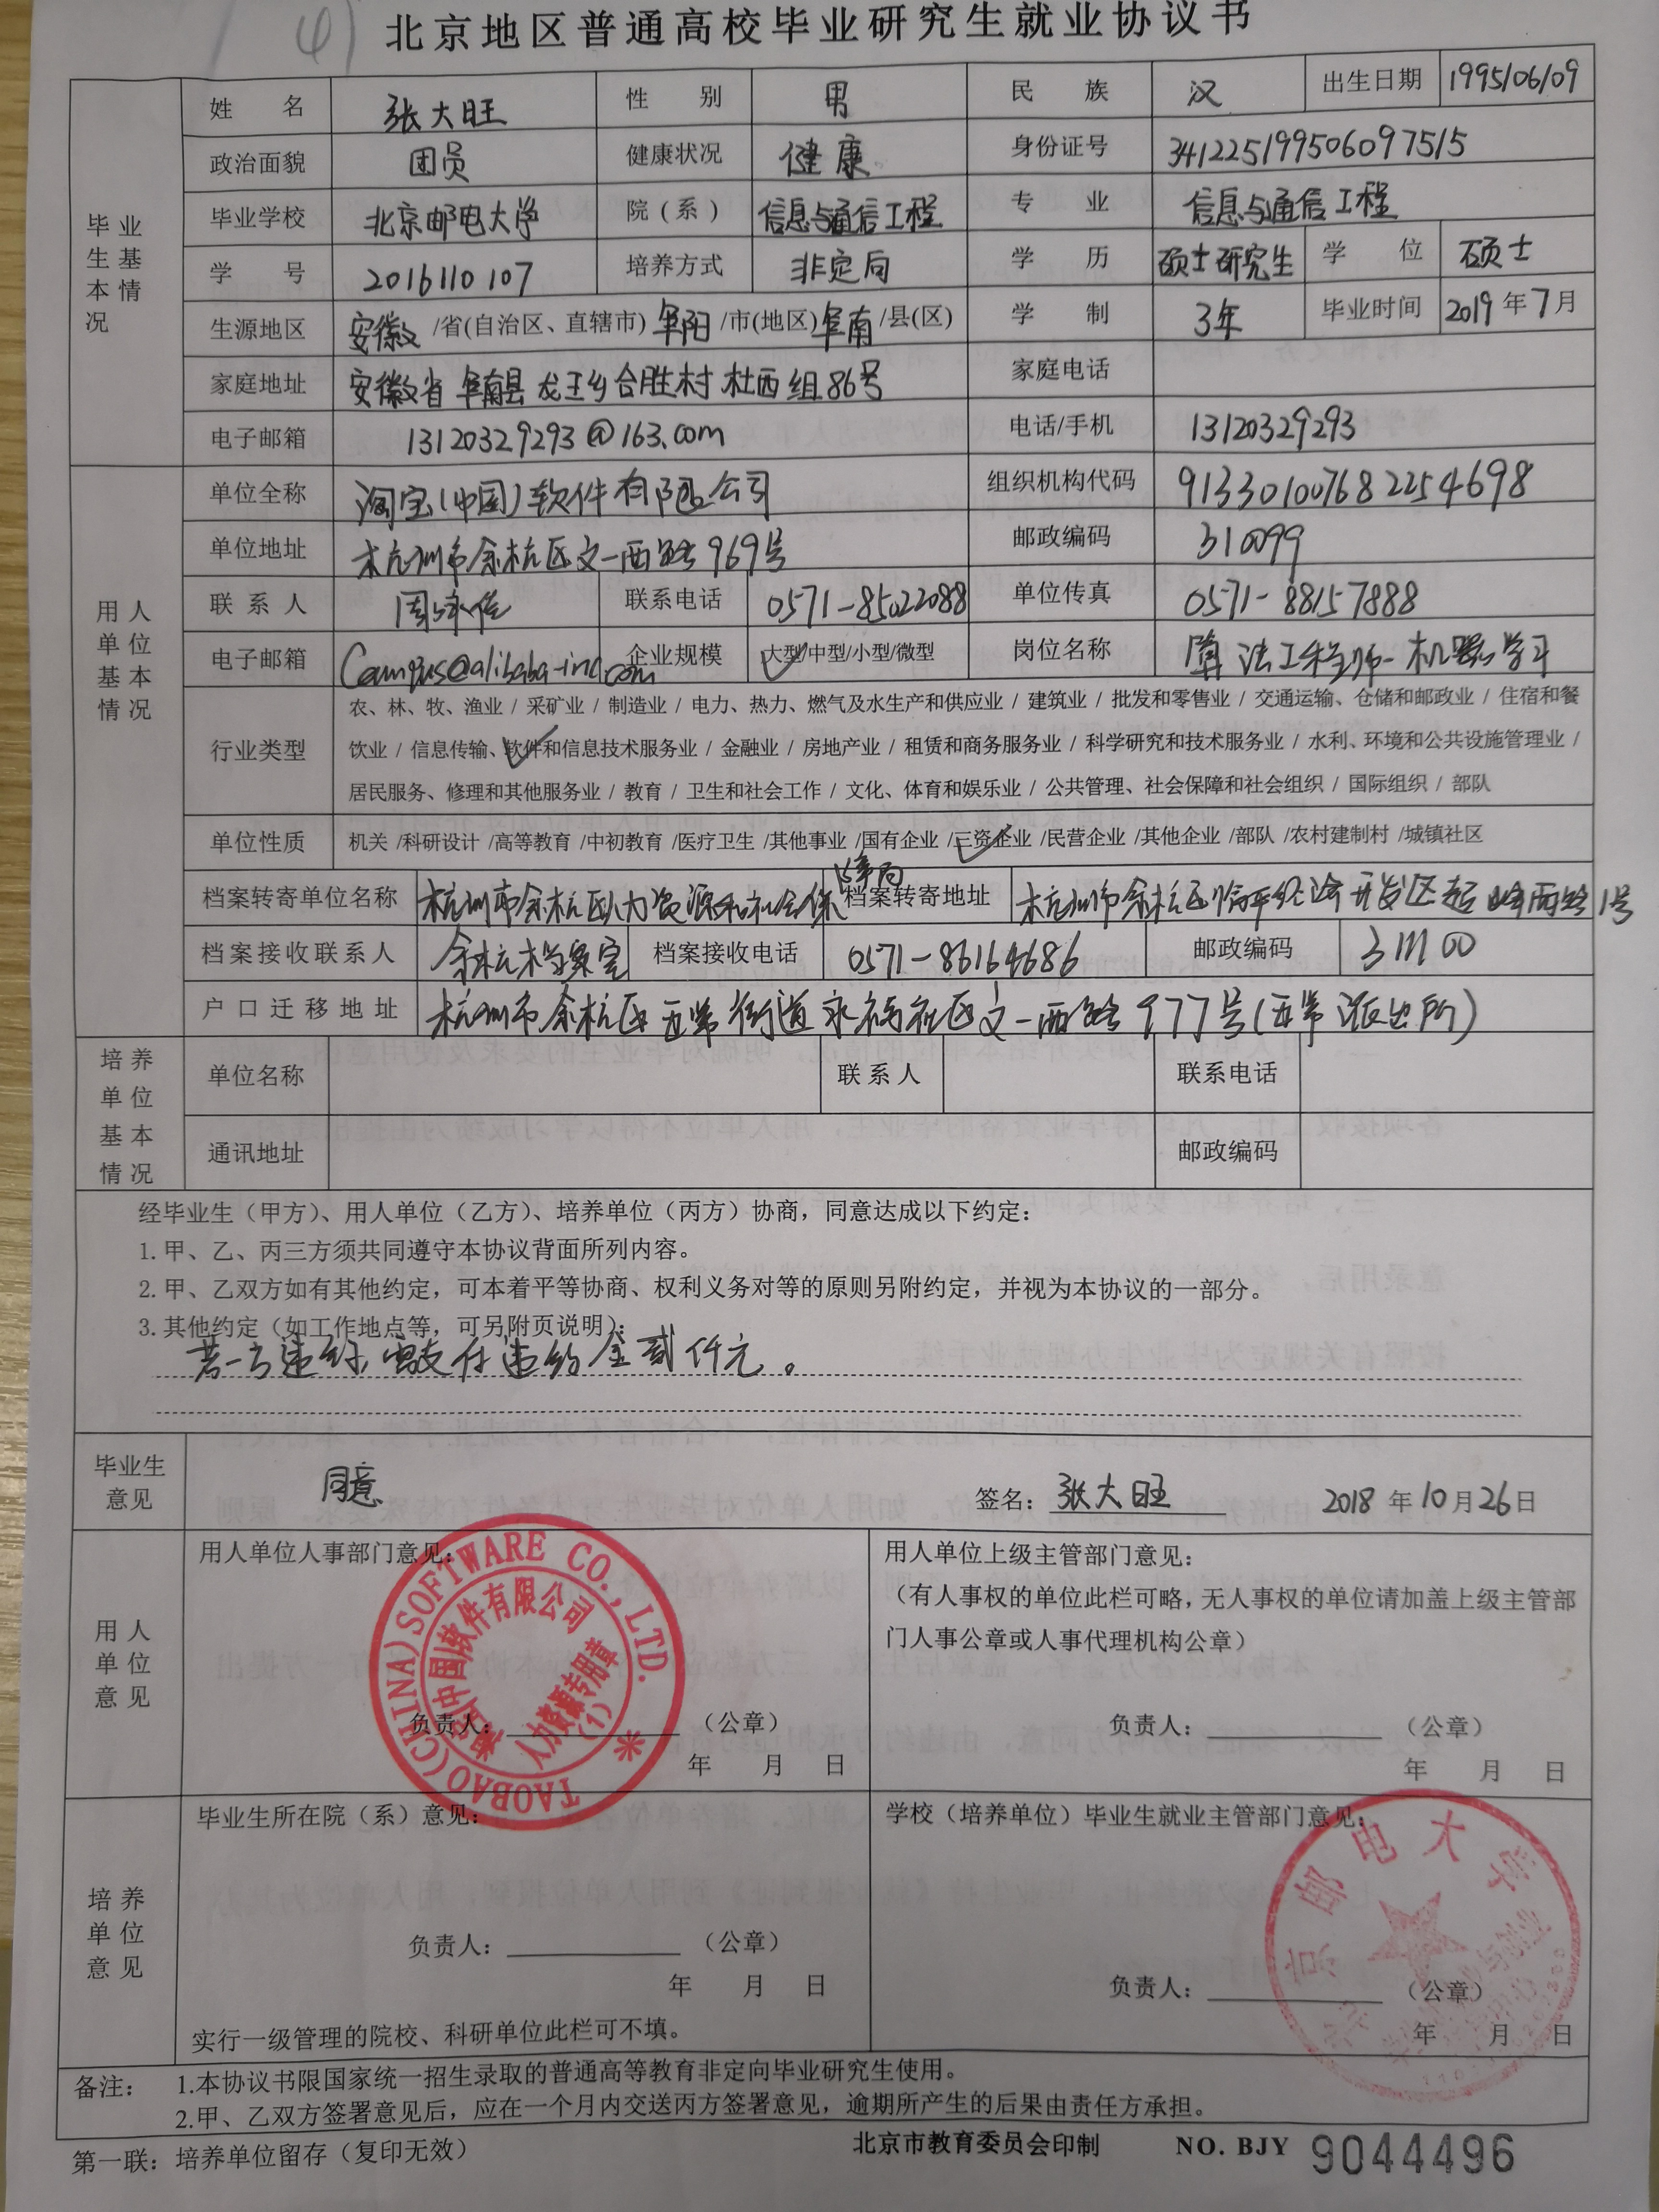 4)
北京地区普通高校毕业研究生就业协议书
毕业生基本情况
姓 名 张大旺 性 别 男 民 族 汉 出生日期 1995/06/09
政治面貌 团员 健康状况 健康 身份证号 341225199506097515
毕业学校 北京邮电大学 院(系) 信息与通信工程 专 业 信息与通信工程
学 号 2016110107 培养方式 非定向 学 历 硕士研究生 学 位 硕士
生源地区 安徽/省(自治区、直辖市)阜阳/市(地区)阜南/县(区) 学 制 3年 毕业时间 2019年7月
家庭地址 安徽省阜南县龙王乡合胜村杜西组86号 家庭电话
电子邮箱 13120329293@163.com 电话/手机 13120329293
用人单位基本情况
单位全称 淘宝(中国)软件有限公司 组织机构代码 913301007682254698
单位地址 杭州市余杭区文一西路969号 邮政编码 310099
联系人 联系电话 0571-85022088 单位传真 0571-88157888
电子邮箱 Campus@alibaba-inc.com 企业规模 大型/中型/小型/微型 岗位名称 算法工程师-机器学习
行业类型 农、林、牧、渔业 / 采矿业 / 制造业 / 电力、热力、燃气及水生产和供应业 / 建筑业 / 批发和零售业 / 交通运输、仓储和邮政业 / 住宿和餐
饮业 / 信息传输、软件和信息技术服务业 / 金融业 / 房地产业 / 租赁和商务服务业 / 科学研究和技术服务业 / 水利、环境和公共设施管理业 /
居民服务、修理和其他服务业 / 教育 / 卫生和社会工作 / 文化、体育和娱乐业 / 公共管理、社会保障和社会组织 / 国际组织 / 部队
单位性质 机关 /科研设计 /高等教育 /中初教育 /医疗卫生 /其他事业 /国有企业 /三资企业 /民营企业 /其他企业 /部队 /农村建制村 /城镇社区
档案转寄单位名称 杭州市余杭区人力资源和社会保障局 档案转寄地址 杭州市余杭区临平经济开发区超峰西路1号
档案接收联系人 余杭档案室 档案接收电话 0571-86164686 邮政编码 311100
户口迁移地址 杭州市余杭区五常街道永福社区文一西路977号(五常派出所)
培养单位基本情况
单位名称 联系人 联系电话
通讯地址 邮政编码
经毕业生（甲方）、用人单位（乙方）、培养单位（丙方）协商，同意达成以下约定：
1. 甲、乙、丙三方须共同遵守本协议背面所列内容。
2. 甲、乙双方如有其他约定，可本着平等协商、权利义务对等的原则另附约定，并视为本协议的一部分。
3. 其他约定（如工作地点等，可另附页说明）：
若一方违约需支付违约金贰仟元。
毕业生意见 同意 签名：张大旺 2018年10月26日
用人单位意见
用人单位人事部门意见： 用人单位上级主管部门意见：
（有人事权的单位此栏可略，无人事权的单位请加盖上级主管部
门人事公章或人事代理机构公章）
负责人： （公章） 负责人： （公章）
年 月 日 年 月 日
TAOBAO(CHINA)SOFTWARE CO.,LTD.
淘宝中国软件有限公司
人力资源专用章
(1)
培养单位意见
毕业生所在院（系）意见： 学校（培养单位）毕业生就业主管部门意见：
负责人： （公章） 负责人： （公章）
年 月 日 年 月 日
北京邮电大学
实行一级管理的院校、科研单位此栏可不填。
备注： 1.本协议书限国家统一招生录取的普通高等教育非定向毕业研究生使用。
2.甲、乙双方签署意见后，应在一个月内交送丙方签署意见，逾期所产生的后果由责任方承担。
第一联：培养单位留存（复印无效） 北京市教育委员会印制 NO. BJY 9044496